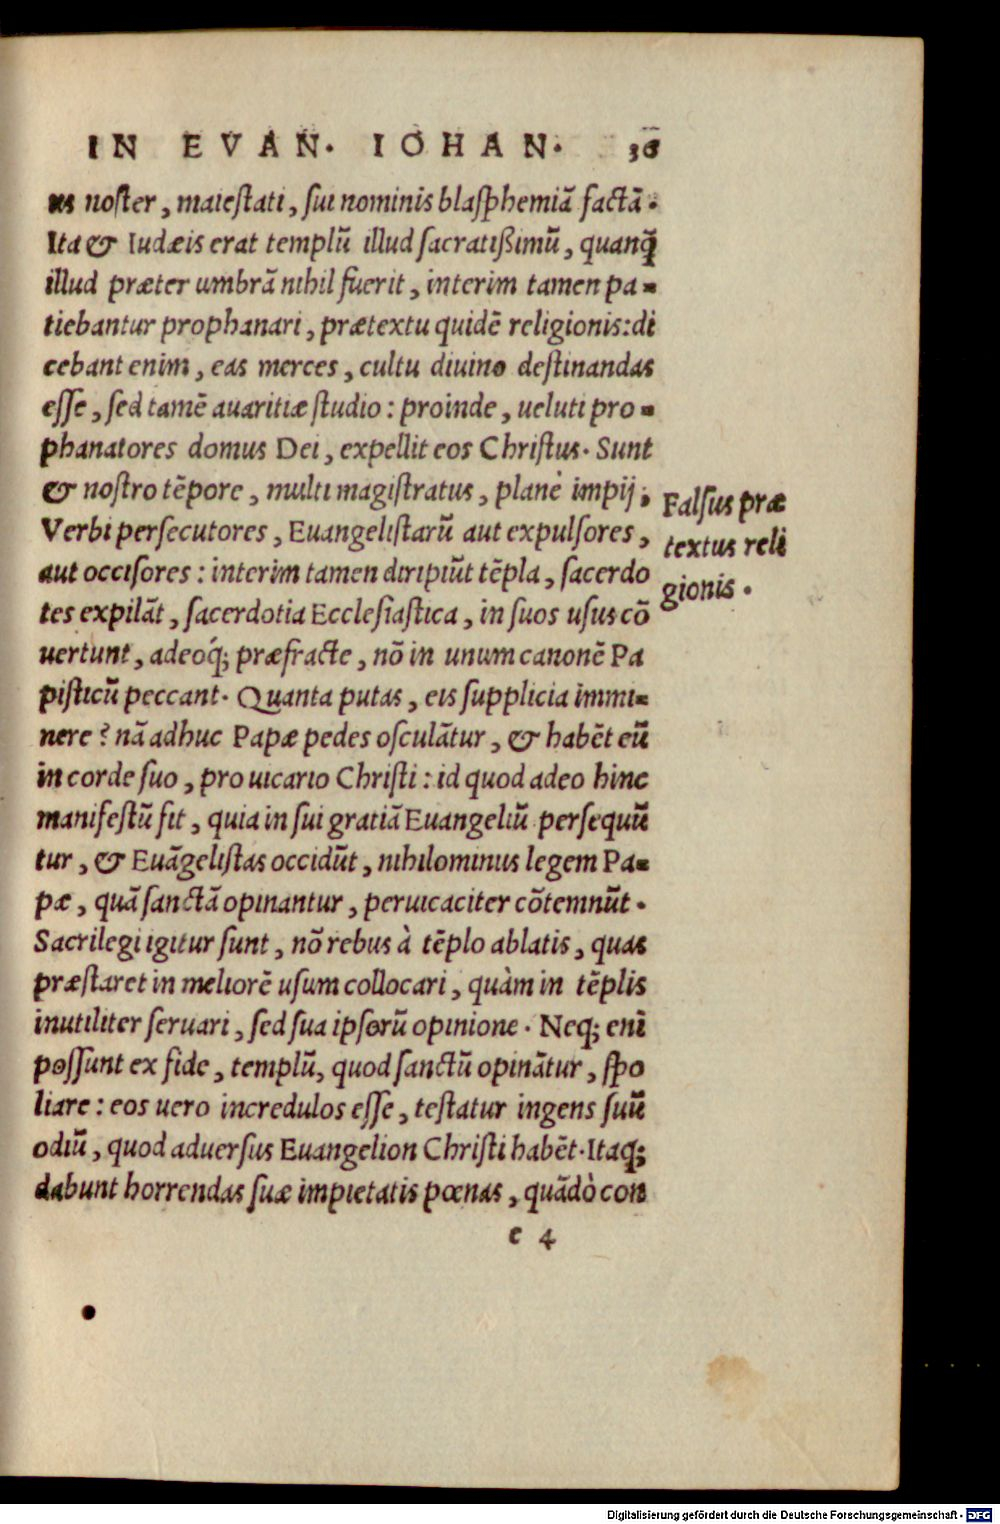 IN EVAN. IOHAN. 36
us noster, maiestati, sui nominis blasphemiã factã.
Ita & Iudæis erat templũ illud sacratißimũ, quanq̃
illud præter umbrã nihil fuerit, interim tamen pa-
tiebantur prophanari, prætextu quidẽ religionis: di
cebant enim, eas merces, cultu diuino destinandas
esse, sed tamẽ auaritiæ studio: proinde, ueluti pro-
phanatores domus Dei, expellit eos Christus. Sunt
& nostro tẽpore, multi magistratus, planè impij,
Verbi persecutores, Euangelistarũ aut expulsores,
aut occisores: interim tamen diripiũt tẽpla, sacerdo
tes expilãt, sacerdotia Ecclesiastica, in suos usus cõ
uertunt, adeoq́; præfracte, nõ in unum canonẽ Pa
pisticũ peccant. Quanta putas, eis supplicia immi-
nere? nã adhuc Papæ pedes osculãtur, & habẽt eũ
in corde suo, pro uicario Christi: id quod adeo hinc
manifestũ fit, quia in sui gratiã Euangeliũ persequũ
tur, & Euãgelistas occidũt, nihilominus legem Pa-
pæ, quã sanctã opinantur, peruicaciter cõtemnũt.
Sacrilegi igitur sunt, nõ rebus à tẽplo ablatis, quas
præstaret in meliorẽ usum collocari, quàm in tẽplis
inutiliter seruari, sed sua ipsorũ opinione. Neq; enĩ
possunt ex fide, templũ, quod sanctũ opinãtur, spo
liare: eos uero incredulos esse, testatur ingens suũ
odiũ, quod aduersus Euangelion Christi habẽt. Itaq;
dabunt horrendas suæ impietatis pœnas, quãdò con
e 4
Falsus præ
textus reli
gionis.
Digitalisierung gefördert durch die Deutsche Forschungsgemeinschaft - DFG